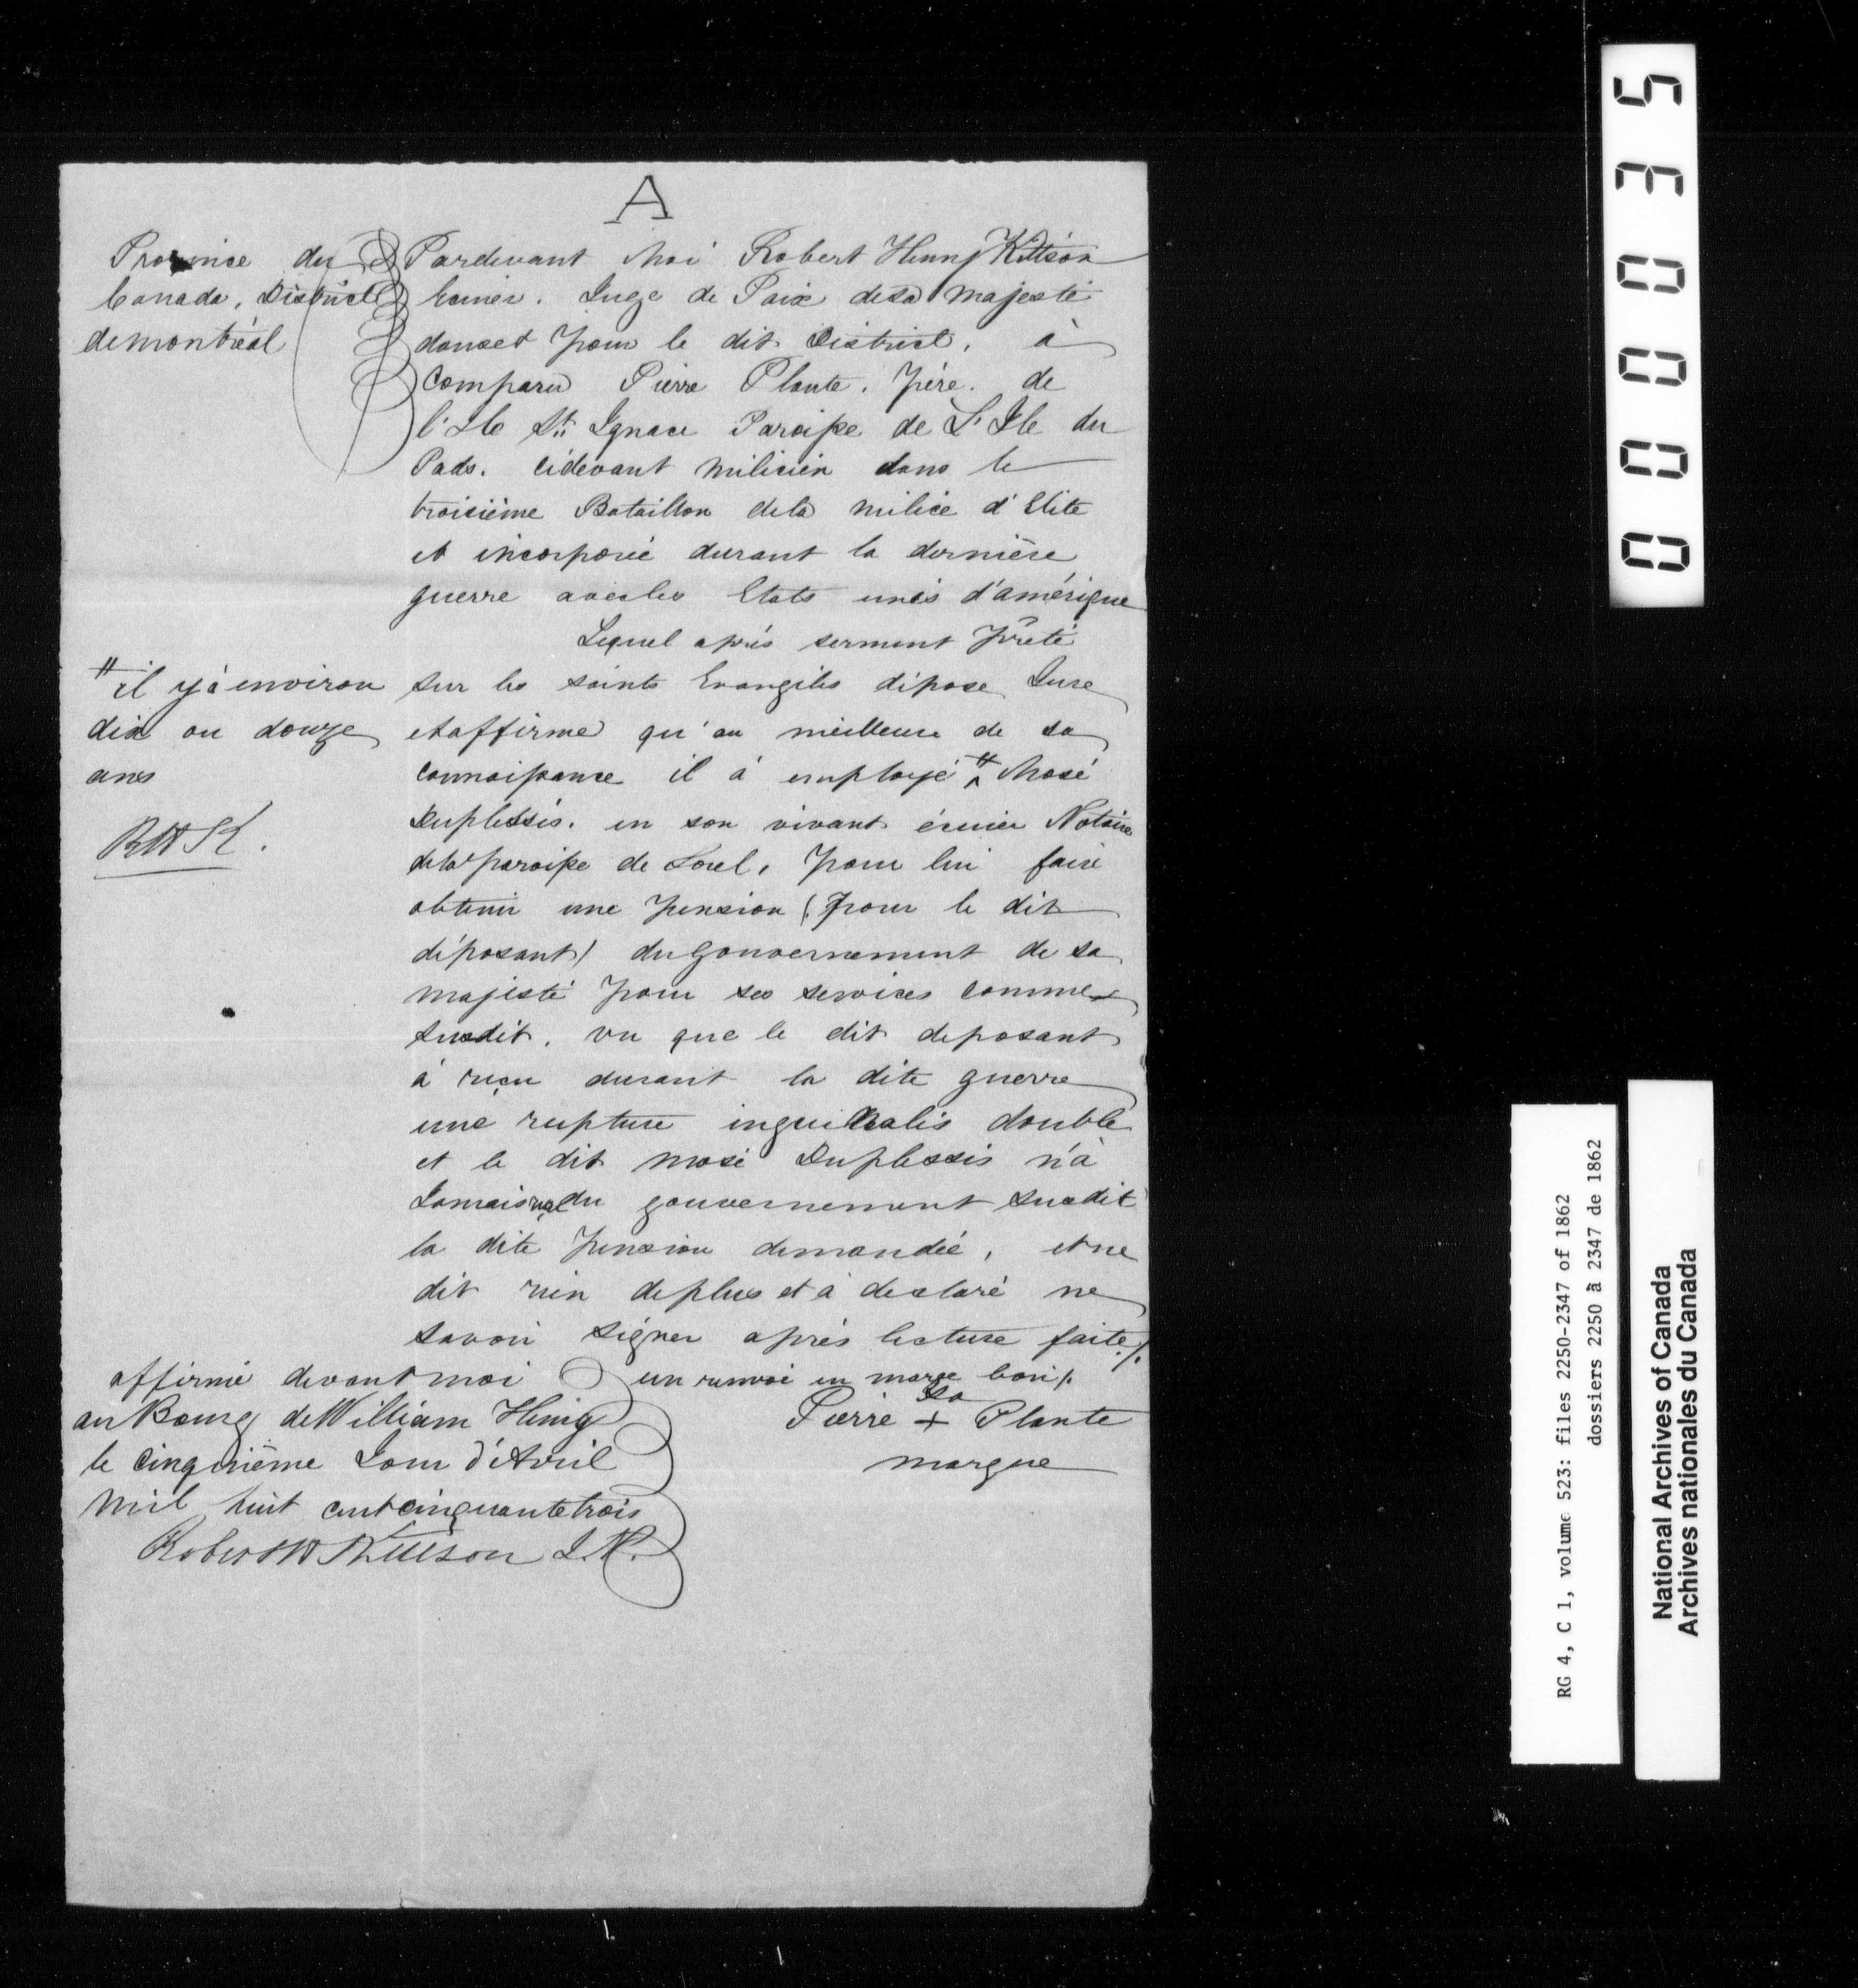 A
Province du
Canada, District
de montréal
Pardevant Moi Robert Henry Kittson
Ecuier. Juge de Paix de sa majesté
dans et pour le dit District, à
comparu Pierre Plante, père. de
l'Ile St Ignace Paroisse de L'Ile du
Pads. cidevant milicien dans le
troisième Bataillon de la milice d'Elite
et incorporée durant la dernière
guerre avec les Etats unis d'amérique
Lequel après serment prêté
sur les saints Evangiles dépose, Jure
et affirme qu'au meilleure de sa
connaissance il à employé # Mosé
Duplessis. en son vivant écuier Notaire
de la paroisse de Sorel, pour lui faire
obtenir une pension (pour le dit
déposant) du gouvernement de sa
majesté pour ses services comme
susdit, vu que le dit deposant
à reçu durant la dite guerre
une rupture inguinalis double
et le dit mosé Duplessis n'à
Jamais reçu du gouvernement susdit
la dite pension demandée, et ne
dit rien de plus et à declaré ne
savoir signer après lecture faite ./.
un renvoi en marge bon ./.
# il y à environ
dix ou douze
ans
RHK.
affirmé devant moi
au Bourg de William Henry
le cinquième Jour d'Avril
mil huit cent cinquante trois
Robert H Kittson J.P.
sa
Pierre + Plante
marque
000035
RG 4, C 1, volume 523: files 2250-2347 of 1862
dossiers 2250 à 2347 de 1862
National Archives of Canada
Archives nationales du Canada